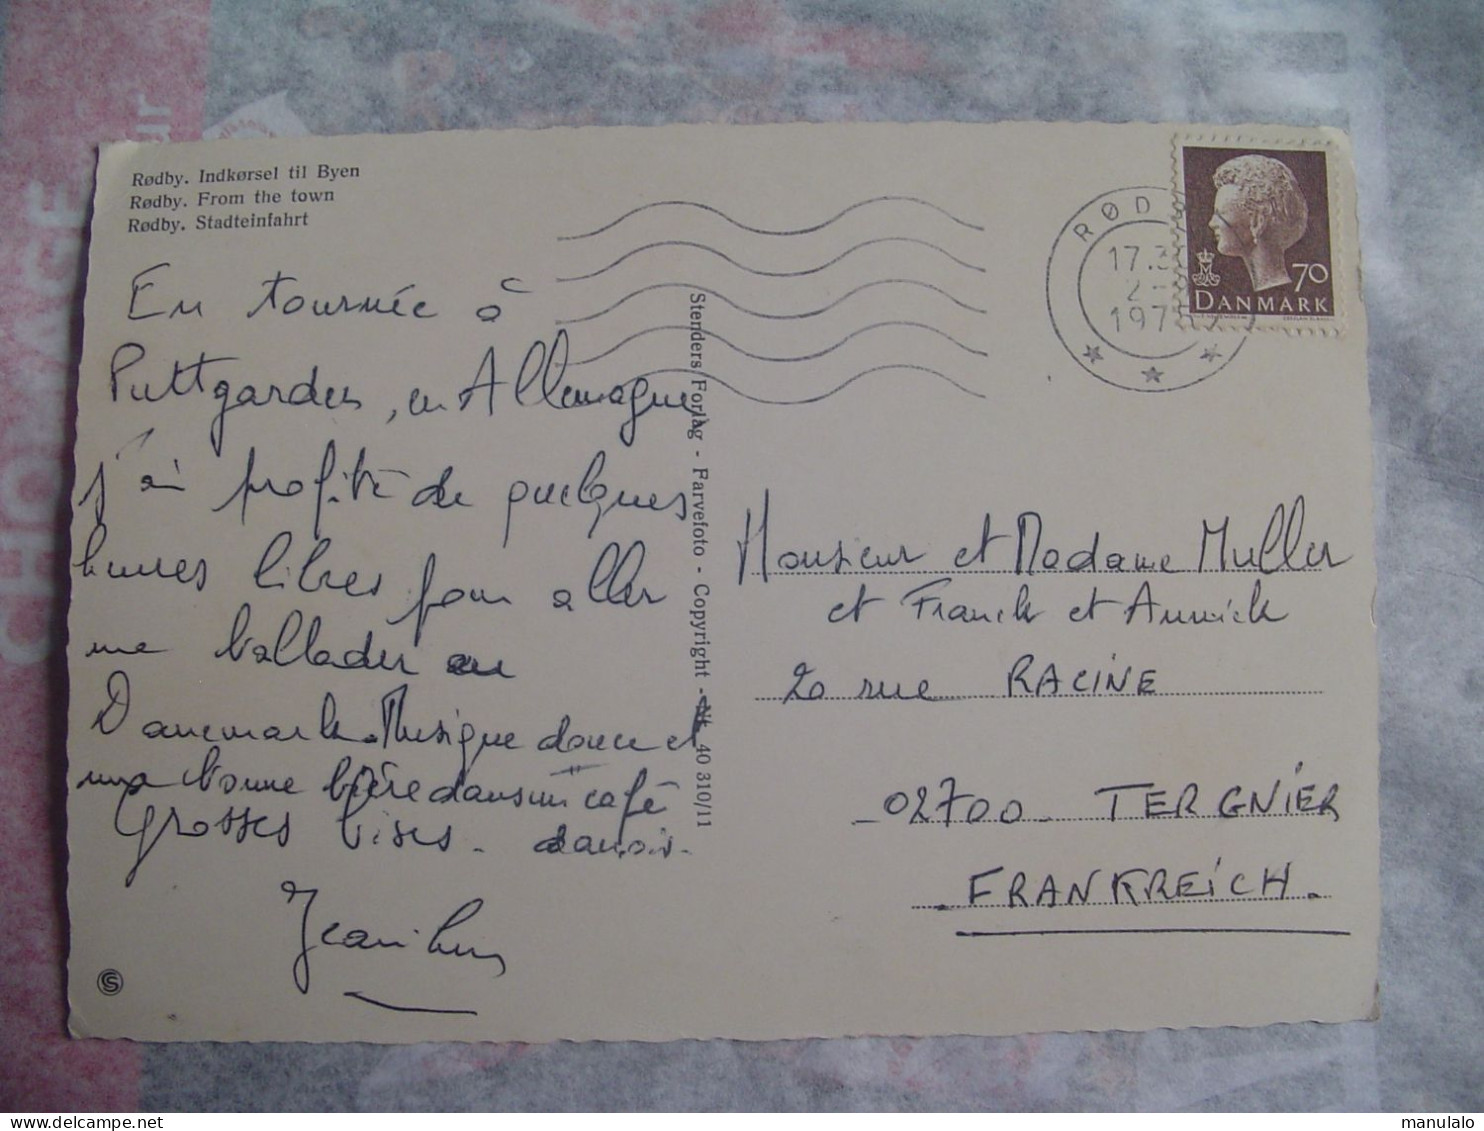 Rødby. Indkørsel til Byen
Rødby. From the town
Rødby. Stadteinfahrt
En tournée à
Puttgarden, en Allemagne,
j'ai profité de quelques
heures libres pour aller
me ballader au
Danemark. Musique douce et
une bonne bière dans un café
Grosses bises. danois.
Stenders Forlag - Farvefoto - Copyright - Nr. 40 310/11
RØD
17.3
2
1975
70
DANMARK
Monsieur et Madame Muller
et Franck et Annick
20 rue RACINE
02700. TERGNIER
. FRANKREICH.
CHOUAGE
ur
© www.delcampe.net
manulalo